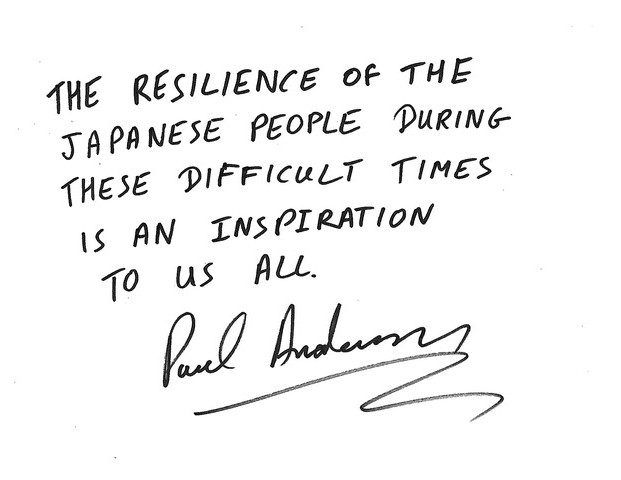 THE RESILIENCE OF THE
JAPANESE PEOPLE DURING
THESE DIFFICULT TIMES
IS AN INSPIRATION
TO US ALL.
Paul Anderson